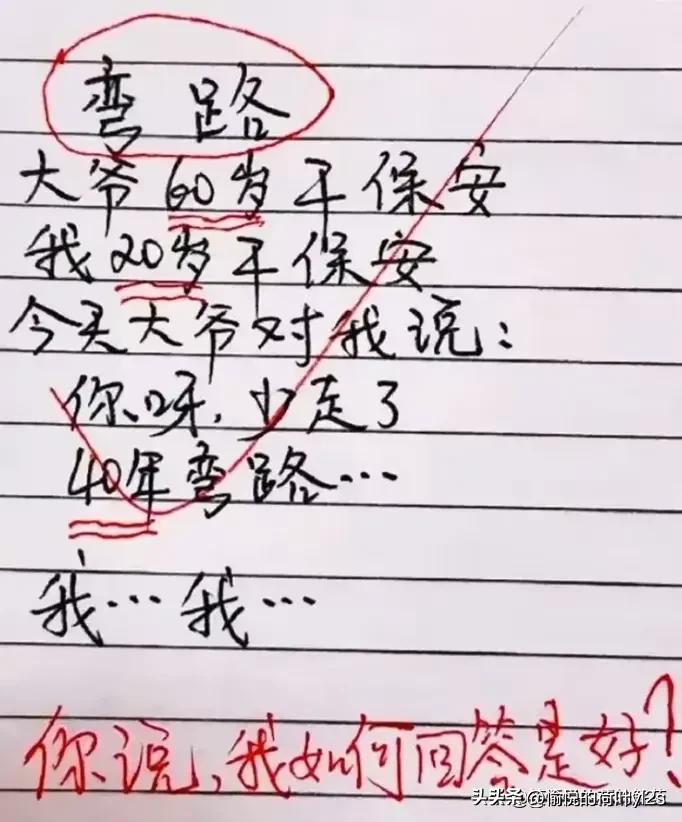 弯路
大爷60岁干保安
我20岁干保安
今天大爷对我说:
你呀,少走了
40年弯路…
我…我…
你说,我如何回答是好?
头条